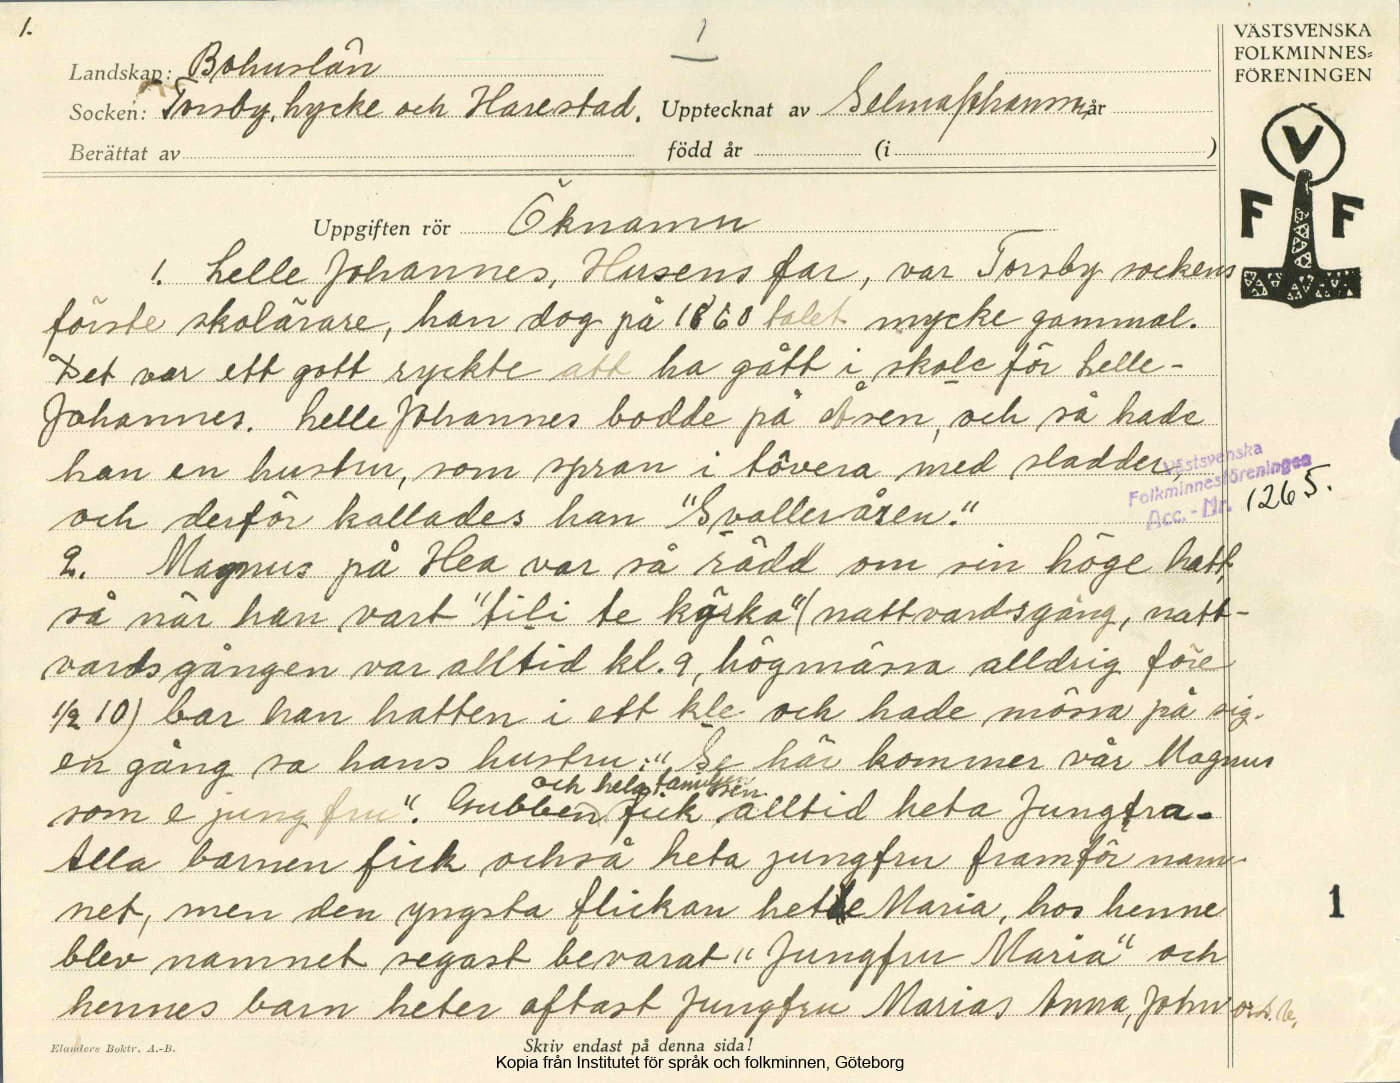 1.
1
Landskap: Bohuslän
Socken: Torsby, Lycke och Harestad. Upptecknat av Selma Johansson, år
Berättat av född år (i )
VÄSTSVENSKA
FOLKMINNES=
FÖRENINGEN
V
F F
Uppgiften rör Öknamn
1. Lelle Johannes, Husens far, var Torsby sockens
förste skolärare, han dog på 1860 talet mycke gammal.
Det var ett gott ryckte att ha gått i skole för Lelle-
Johannes. Lelle Johannes bodde på Åsen, och så hade
han en hustru, som spran i tövera med sladder,
och derför kallades han "Svalleråsen."
Västsvenska
Folkminnesföreningen
Acc.-Nr. 1265.
2. Magnus på Hea var så rädd om sin höge hatt,
så når han vart "tili te körka" (nattvardsgång, natt-
vardsgången var alltid kl. 9, högmässa alldrig före
1/2 10) bar han hatten i ett kle och hade mössa på sig.
en gång sa hans hustru: "Se här kommer vår Magnus
och hela familjen
som e jungfru". Gubben fick alltid heta Jungfra-
Alla barnen fick också heta jungfru framför nam-
net, men den yngsta flickan hette Maria, hos henne
blev namnet segast bevarat "Jungfru Maria" och
hennes barn heter oftast Jungfru Marias Anna, John o.s.v.
1
Elanders Boktr. A.-B.
Skriv endast på denna sida!
Kopia från Institutet för språk och folkminnen, Göteborg